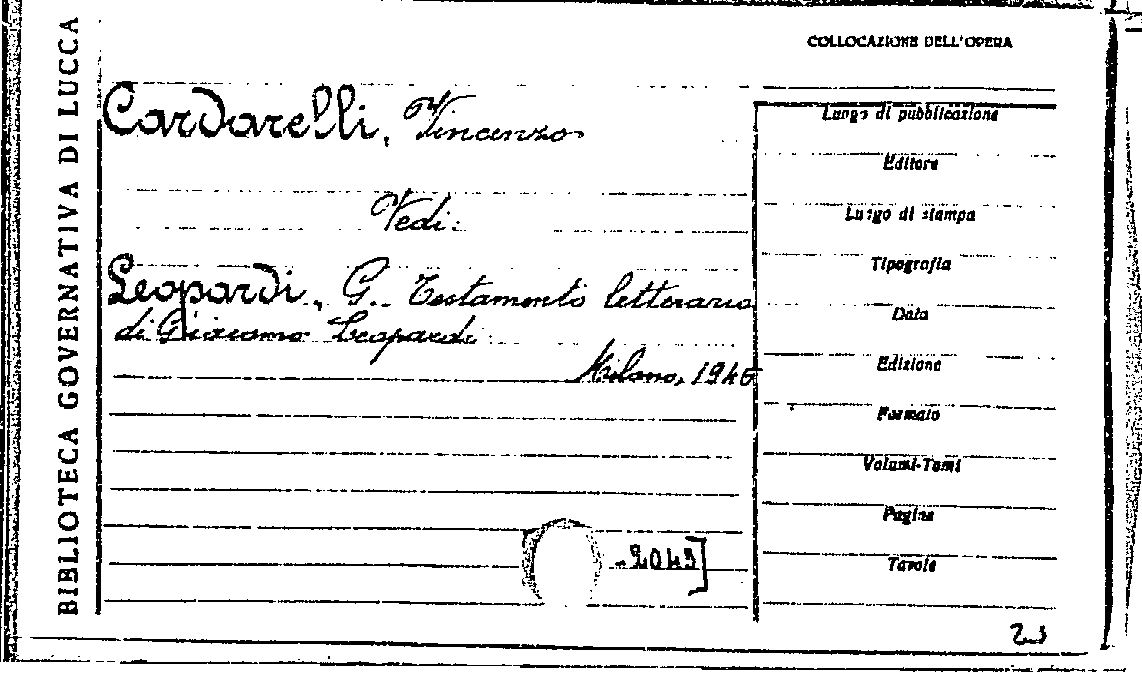 BIBLIOTECA GOVERNATIVA DI LUCCA
COLLOCAZIONE DELL'OPERA
Cardarelli, Vincenzo
Vedi:
Leopardi, G. Testamento letterario
di Giacomo Leopardi
Milano, 1946
-2049]
Luogo di pubblicazione
Editore
Luogo di stampa
Tipografia
Data
Edizione
Formato
Volumi-Tomi
Pagine
Tavole